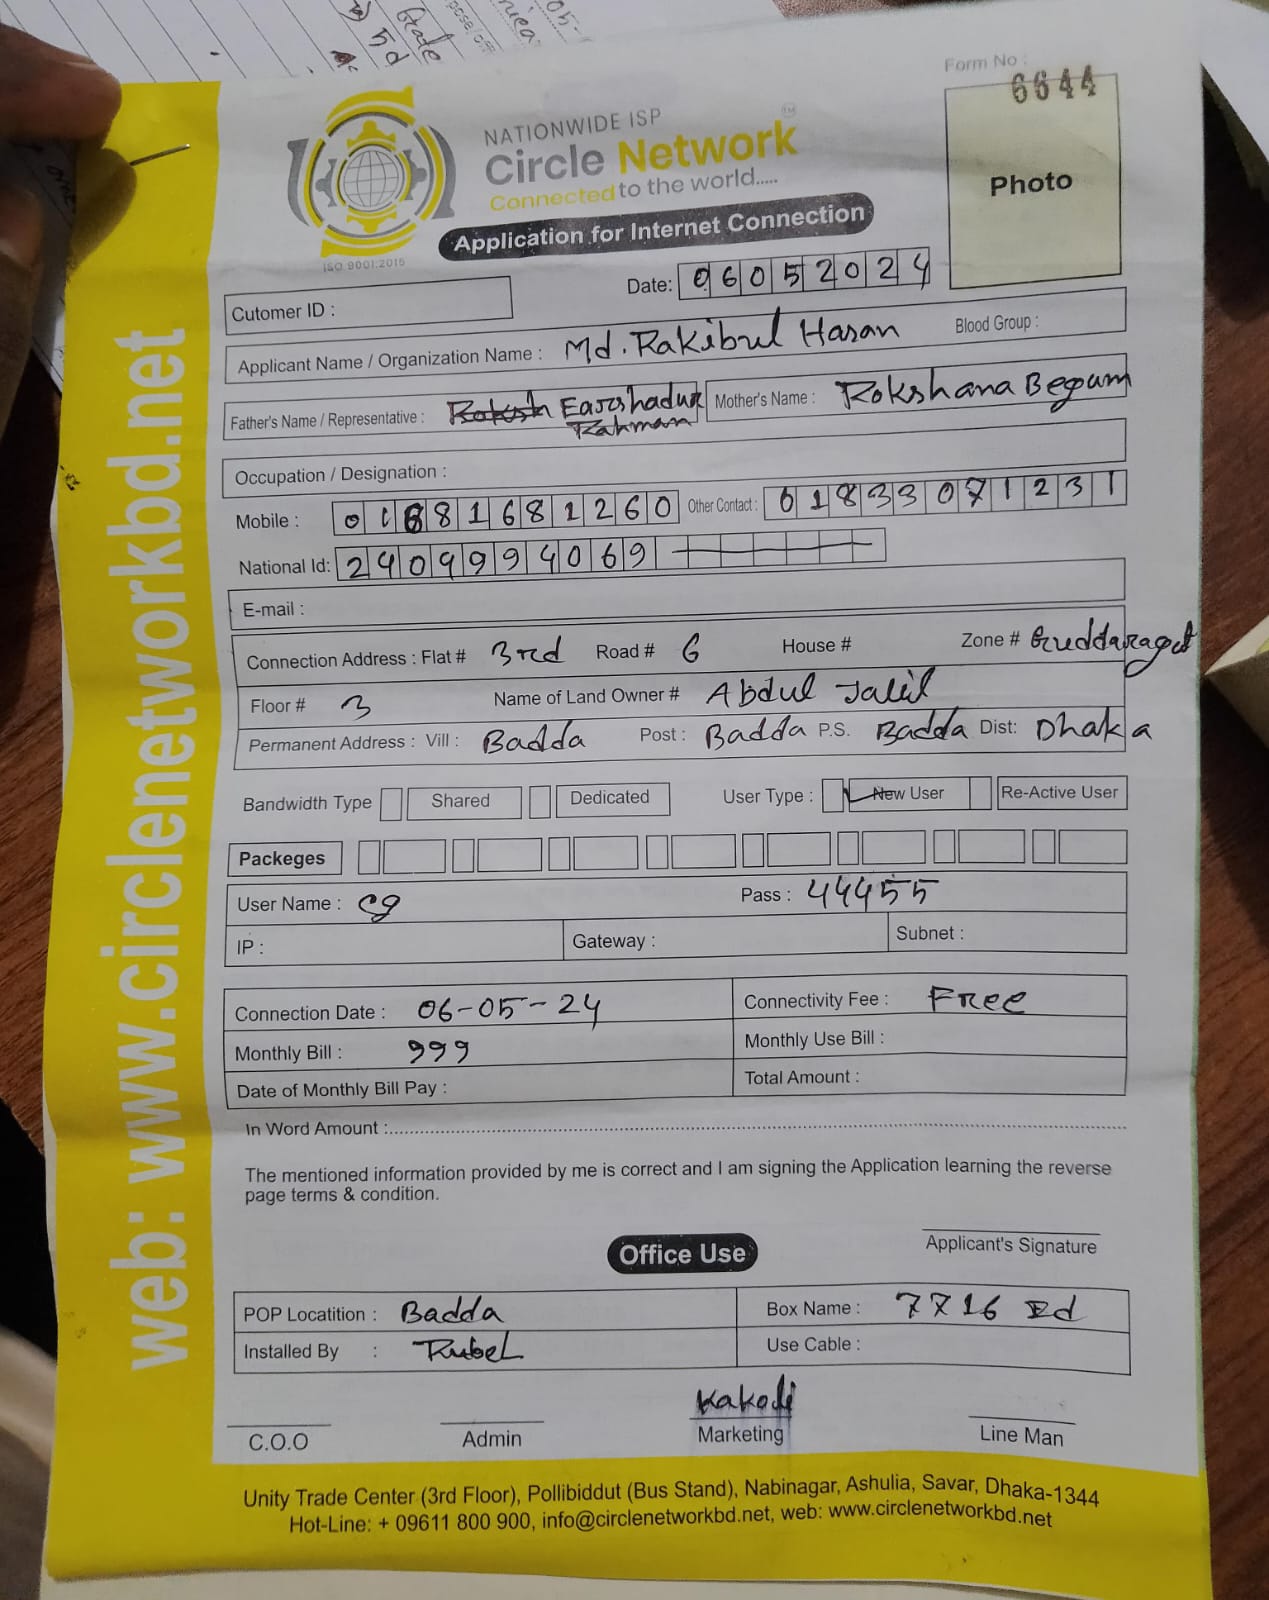 State
5d
Form No :
6644
Photo
NATIONWIDE ISP
Circle Network
TM
Connected to the world.....
ISO 9001:2015
Application for Internet Connection
Date: 06052024
Cutomer ID :
Applicant Name / Organization Name : Md. Rakibul Hasan Blood Group :
Father's Name / Representative : Earshadur Rahman Mother's Name : Rokshana Begum
Occupation / Designation :
Mobile : 01681681260 Other Contact : 01833071231
National Id: 2409994069
E-mail :
Connection Address : Flat # 3rd Road # 6 House # Zone # Guddaraghat
Floor # 3 Name of Land Owner # Abdul Jalil
Permanent Address : Vill : Badda Post : Badda P.S. Badda Dist: Dhaka
Bandwidth Type Shared Dedicated User Type : New User Re-Active User
Packeges
User Name : cg Pass : 44455
IP : Gateway : Subnet :
Connection Date : 06-05-24 Connectivity Fee : Free
Monthly Bill : 999 Monthly Use Bill :
Date of Monthly Bill Pay : Total Amount :
In Word Amount :
The mentioned information provided by me is correct and I am signing the Application learning the reverse
page terms & condition.
Applicant's Signature
Office Use
POP Locatition : Badda Box Name : 7716
Installed By : Rubel Use Cable :
Kakoli
C.O.O Admin Marketing Line Man
Unity Trade Center (3rd Floor), Pollibiddut (Bus Stand), Nabinagar, Ashulia, Savar, Dhaka-1344
Hot-Line: + 09611 800 900, info@circlenetworkbd.net, web: www.circlenetworkbd.net
web: www.circlenetworkbd.net